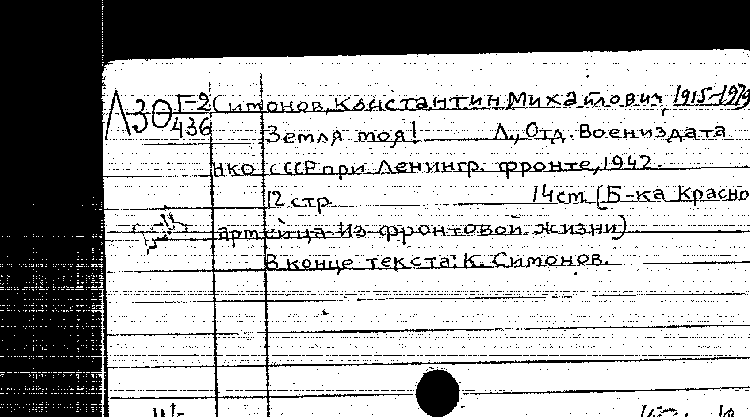 ЛЗО Г-2 Симонов, Константин Михайлович, 1915-1979
436 Земля моя! Л., Отд. Воениздата
НКО СССР при Ленингр. фронте, 1942.
12 стр. 14 см. (Б-ка Красно
армейца. Из фронтовой жизни)
В конце текста: К. Симонов.